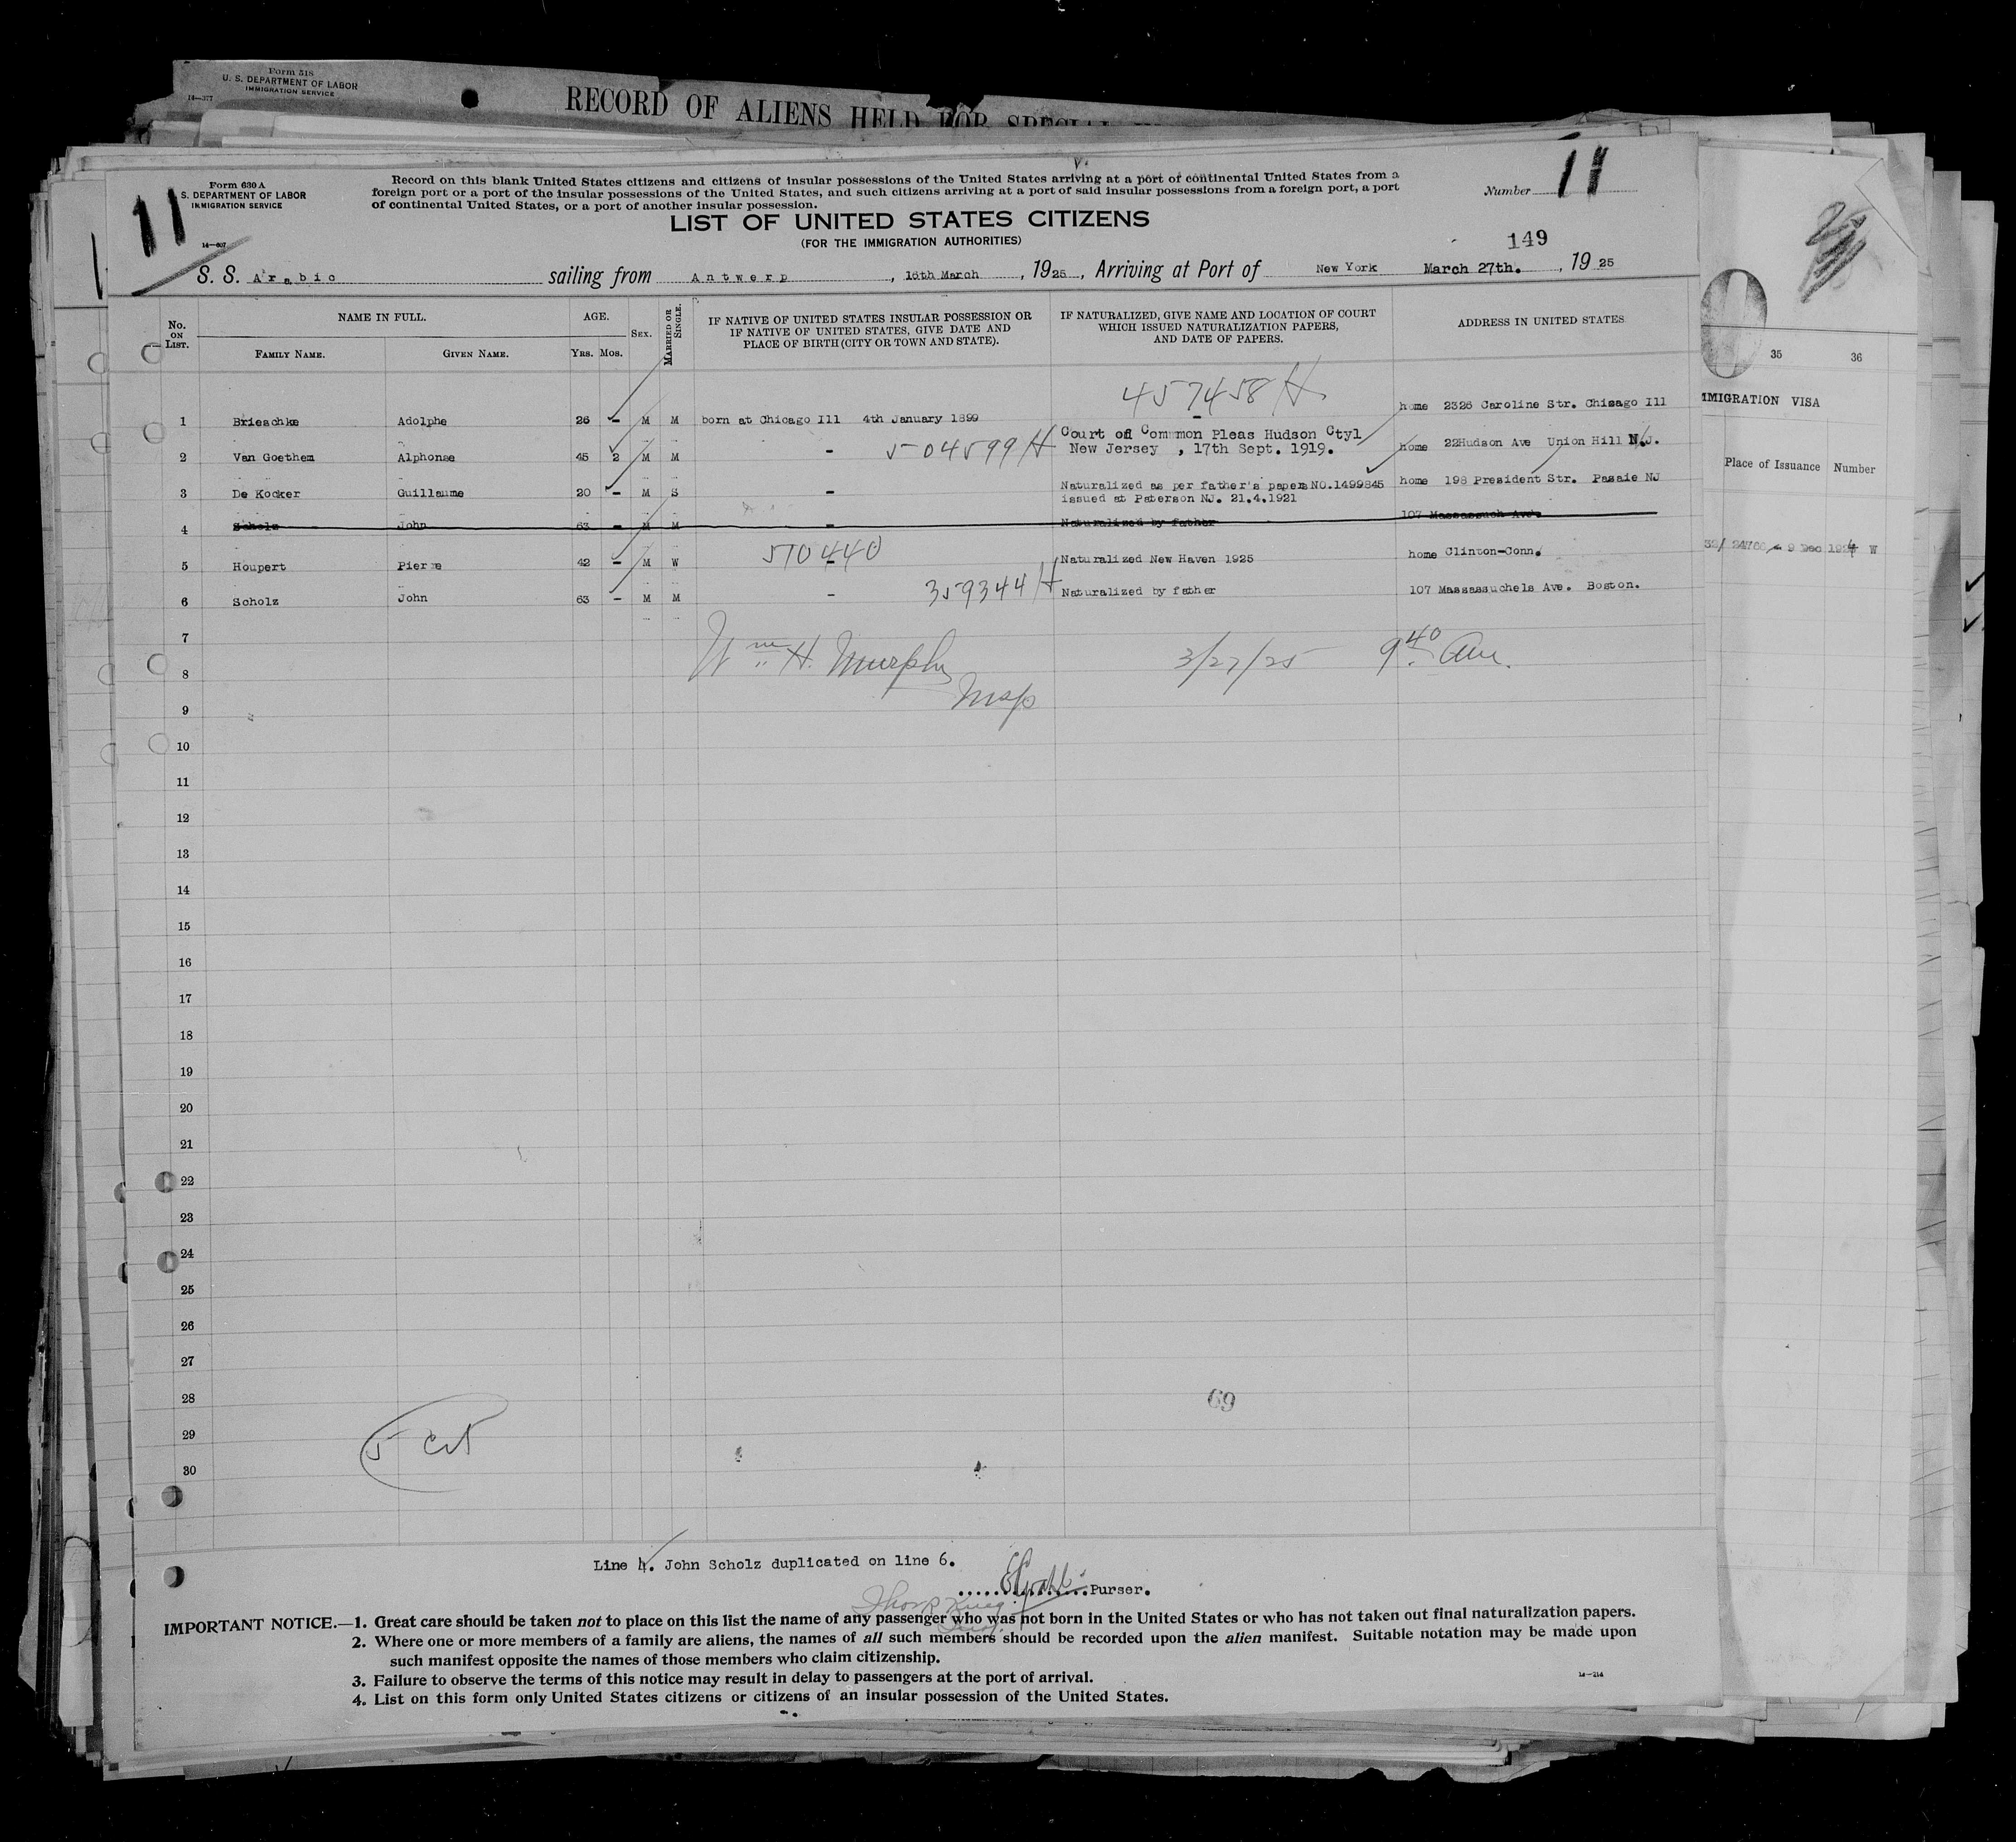 Form 518
U. S. DEPARTMENT OF LABOR
IMMIGRATION SERVICE
14—377
RECORD OF ALIENS HELD FOR SPECIAL
11
Form 630 A
S. DEPARTMENT OF LABOR
IMMIGRATION SERVICE
14—607
Record on this blank United States citizens and citizens of insular possessions of the United States arriving at a port of continental United States from a
foreign port or a port of the insular possessions of the United States, and such citizens arriving at a port of said insular possessions from a foreign port, a port
of continental United States, or a port of another insular possession.
Number 11
LIST OF UNITED STATES CITIZENS
(FOR THE IMMIGRATION AUTHORITIES)
149
S. S. Arabic sailing from Antwerp, 16th March, 1925, Arriving at Port of New York March 27th., 1925
No. ON LIST. NAME IN FULL. AGE. SEX. MARRIED OR SINGLE. IF NATIVE OF UNITED STATES INSULAR POSSESSION OR IF NATIVE OF UNITED STATES, GIVE DATE AND PLACE OF BIRTH (CITY OR TOWN AND STATE). IF NATURALIZED, GIVE NAME AND LOCATION OF COURT WHICH ISSUED NATURALIZATION PAPERS, AND DATE OF PAPERS. ADDRESS IN UNITED STATES
FAMILY NAME. GIVEN NAME. YRS. MOS.
457458 H
1 Brieschke Adolphe 26 – M M born at Chicago Ill 4th January 1899 – home 2326 Caroline Str. Chisago Ill
2 Van Goethem Alphonse 45 2 M M – 504599 H Court of Common Pleas Hudson Ctyl home 22Hudson Ave Union Hill N.J.
New Jersey , 17th Sept. 1919.
3 De Kocker Guillaume 20 – M S – Naturalized as per father's papers NO.1499845 home 198 President Str. Pasaie NJ
issued at Paterson NJ. 21.4.1921
4 Scholz John 63 – M M – Naturalized by father 107 Massassuch Ave.
5 Houpert Pierre 42 – M W 510440 – Naturalized New Haven 1925 home Clinton-Conn.
6 Scholz John 63 – M M – 359344 H Naturalized by father 107 Massassuchels Ave. Boston.
7
8
Wm H. Murphy 3/27/25 9.40 am.
9
10
11
12
13
14
15
16
17
18
19
20
21
22
23
24
25
26
27
28
69
29
30
5
Line 4. John Scholz duplicated on line 6.
Purser.
IMPORTANT NOTICE.—1. Great care should be taken not to place on this list the name of any passenger who was not born in the United States or who has not taken out final naturalization papers.
2. Where one or more members of a family are aliens, the names of all such members should be recorded upon the alien manifest. Suitable notation may be made upon
such manifest opposite the names of those members who claim citizenship.
3. Failure to observe the terms of this notice may result in delay to passengers at the port of arrival.
14—214
4. List on this form only United States citizens or citizens of an insular possession of the United States.
35 36
MMIGRATION VISA
Place of Issuance Number
9 Dec 1924 W